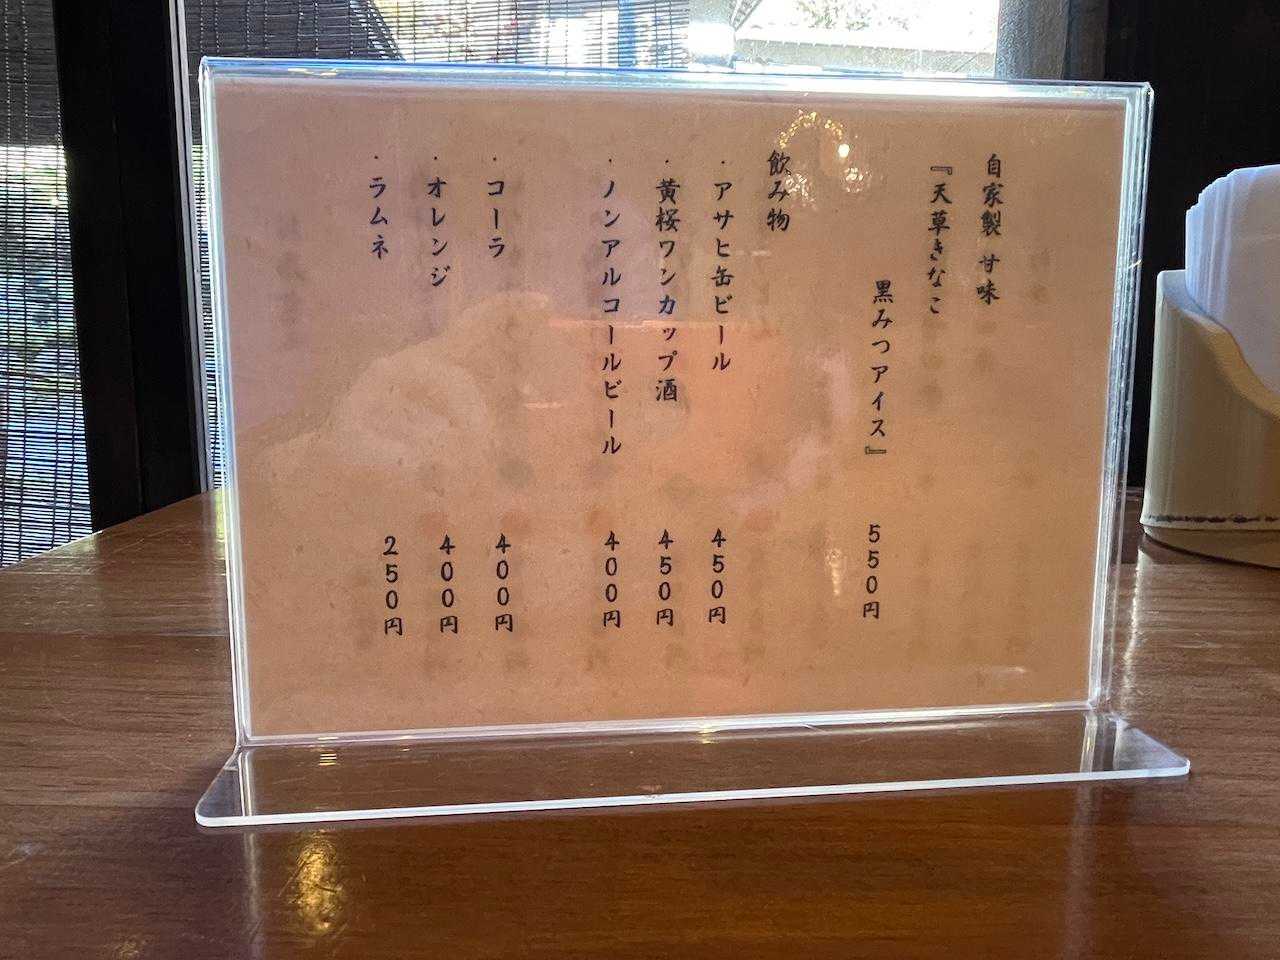 自家製 甘味
『天草きなこ
黒みつアイス』 550円
飲み物
・アサヒ缶ビール 450円
・黄桜ワンカップ酒 450円
・ノンアルコールビール 400円
・コーラ 400円
・オレンジ 400円
・ラムネ 250円